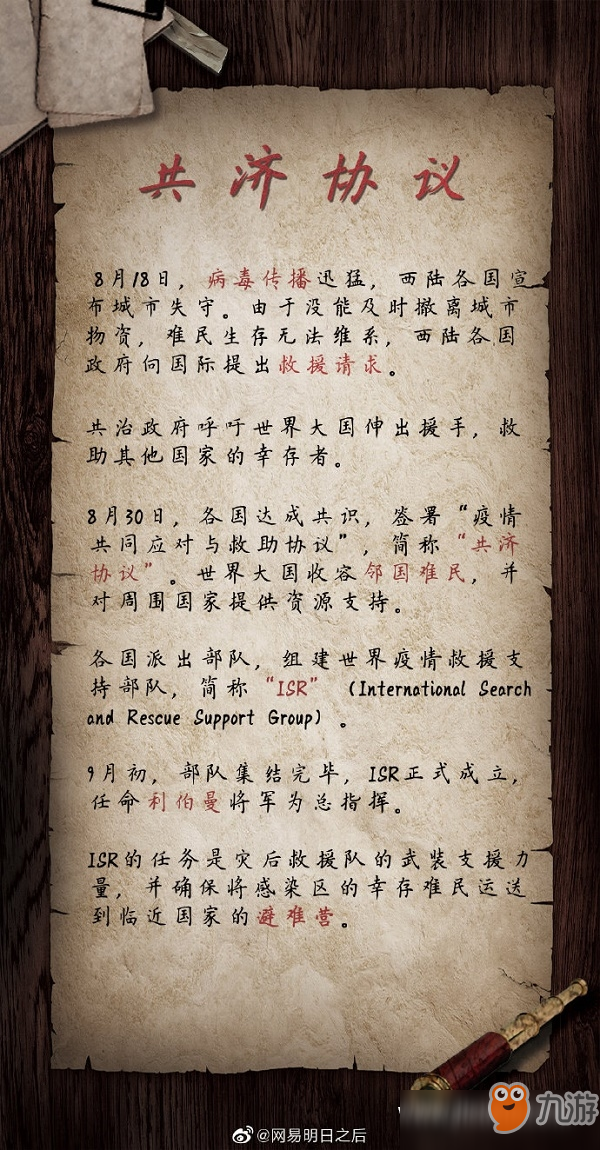 共济协议
8月18日，病毒传播迅猛，西陆各国宣
布城市失守。由于没能及时撤离城市
物资，难民生存无法维系，西陆各国
政府向国际提出救援请求。
共治政府呼吁世界大国伸出援手，救
助其他国家的幸存者。
8月30日，各国达成共识，签署“疫情
共同应对与救助协议”，简称“共济
协议”。世界大国收容邻国难民，并
对周围国家提供资源支持。
各国派出部队，组建世界疫情救援支
持部队，简称“ISR”（International Search
and Rescue Support Group）。
9月初，部队集结完毕，ISR正式成立，
任命利伯曼将军为总指挥。
ISR的任务是灾后救援队的武装支援力
量，并确保将感染区的幸存难民运送
到临近国家的避难营。
@网易明日之后
九游